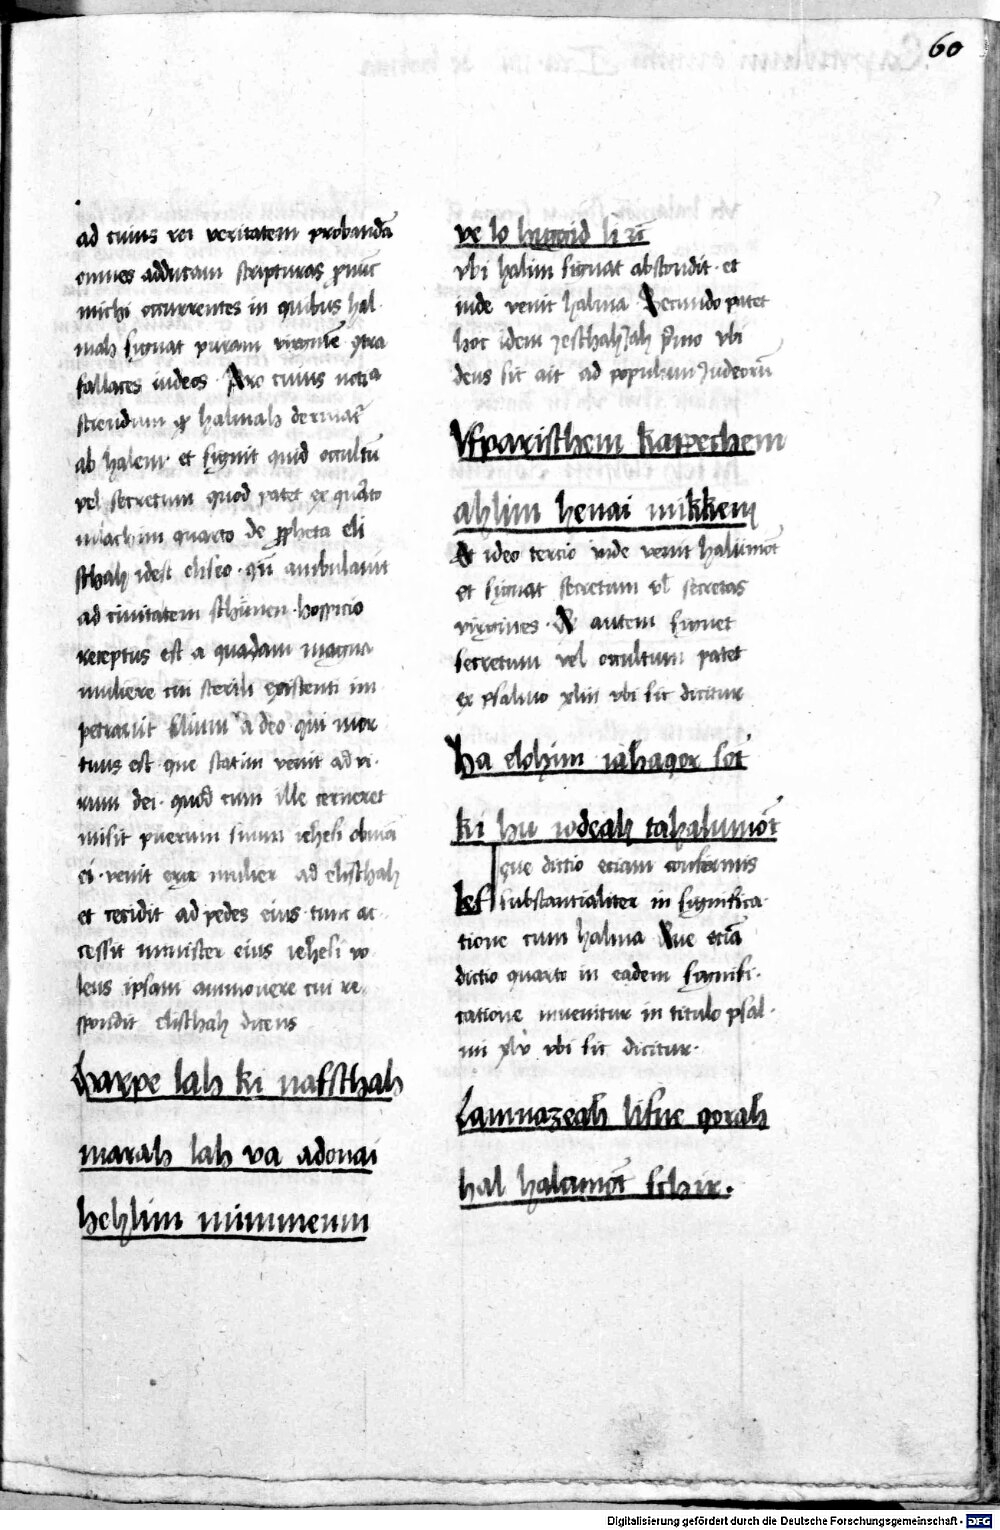 60
ad cuius rei veritatem probandā
omnes adducam scripturas
michi occurrentes in quibus hal
mah signat puram virginē 9tra
fallaces iudeos. Pro cuius noticia
sciendum halmah deriuat̄
ab halem. et signit quid occultū
vel secretum quod patet ex quarto
mlachim quarto de eli
sthah idest eliseo. qui ambulauit
ad ciuitatem schunen. hospicio
receptus est a quadam magna
muliere cui sterili existenti im
petrauit filium a deo qui mor
tuus est que statim venit ad vi
rum dei. quod cum ille cerneret
misit puerum suum iehesi obuiā
ei. venit mulier ad elisthah
et cecidit ad pedes eius tunc ac
cessit minister eius iehesi vo
lens ipsam ammouere cui re
spondit elisthah dicens
harpe lah ki nafsthah
marah lah va adonai
hehlim mimmenni
ve lo higgid li
vbi halim signat abscondit. et
inde venit halma Secundo patet
hoc idem p̄mo vbi
deus sic ait ad populum Iudeorū
Vfparisthem kappechem
ahlim henai mikkem
Et ideo tercio inde venit halūmot
et signat secretum vl secretas
virgines. autem signet
secretum vel occultum patet
ex psalmo xliii vbi sic dicitur
ha elohim iahaqor sot
ki hu iodeah tahalumōt
que dictio eciam
lef substantialiter in significa
tione cum halma Que eciā
dictio quarto in eadem signifi
catione inuenitur in titulo psal
mi xlv vbi sic dicitur.
Lamnazeah lifne qorah
hal halamōt schir.
Digitalisierung gefördert durch die Deutsche Forschungsgemeinschaft - DFG